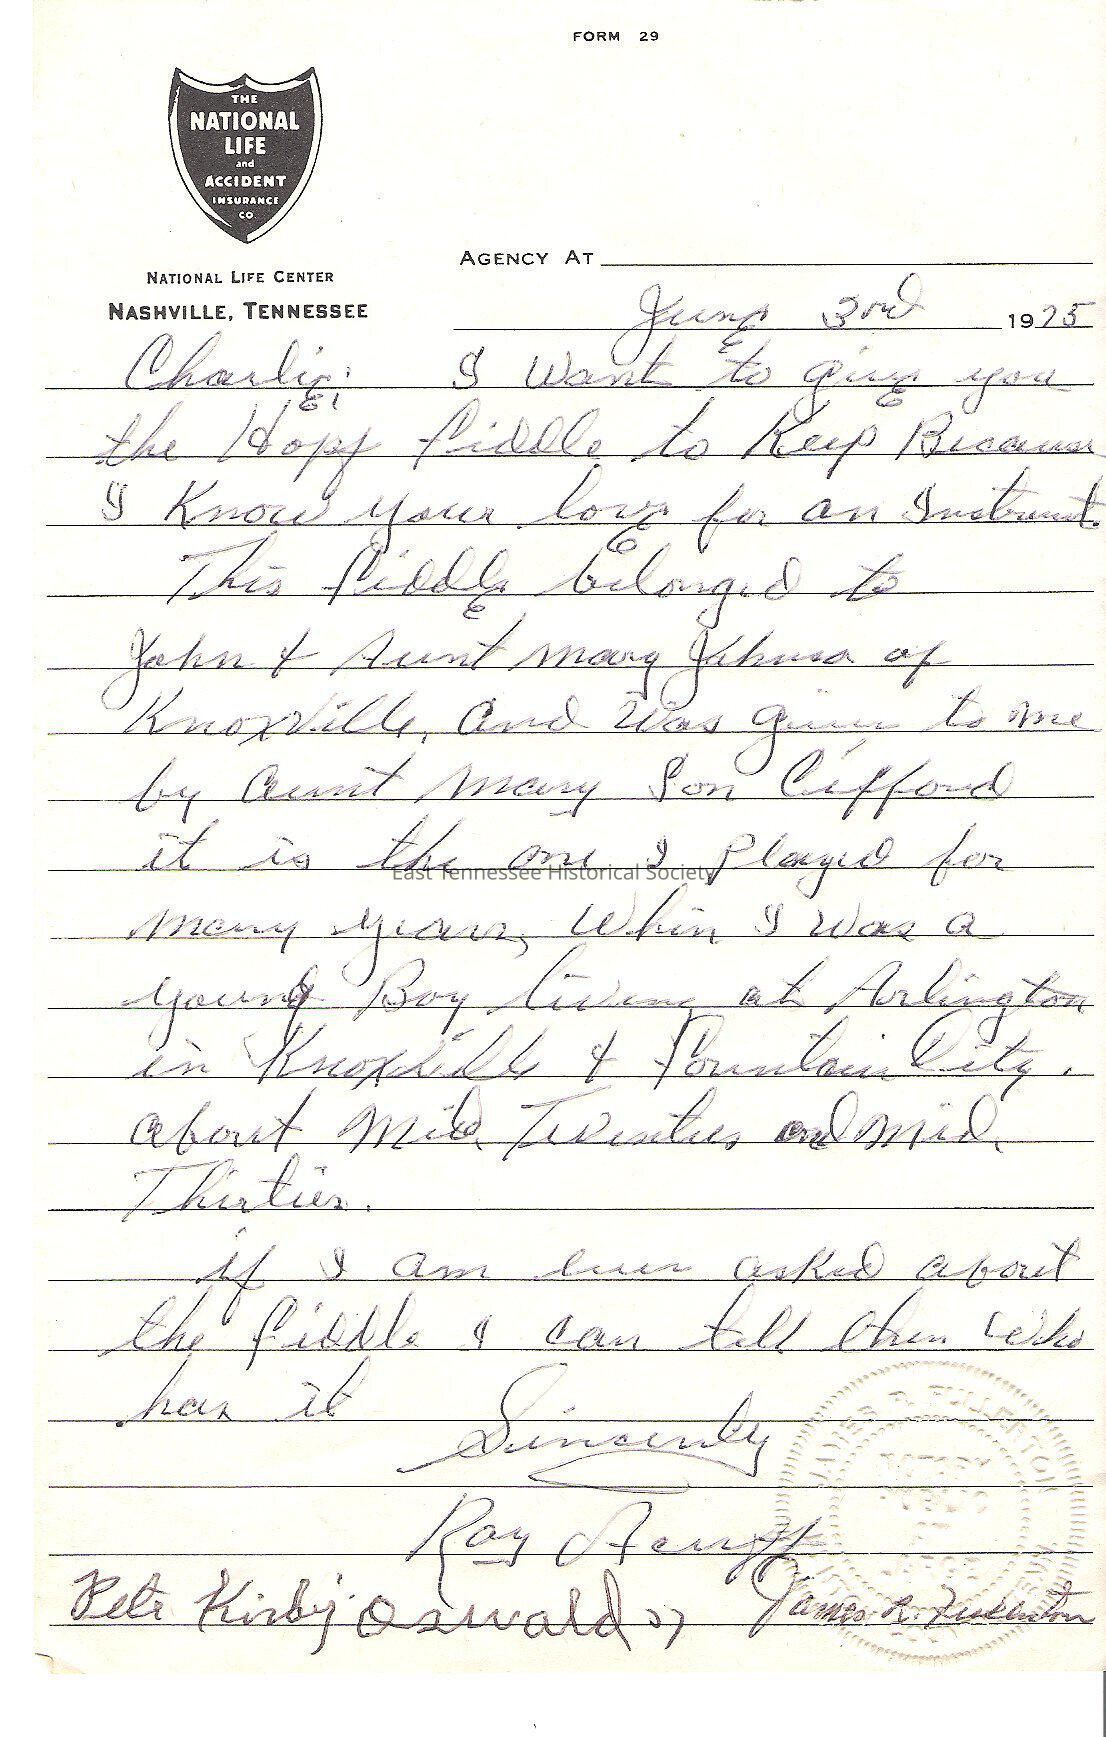 FORM 29
THE
NATIONAL
LIFE
and
ACCIDENT
INSURANCE
CO.
NATIONAL LIFE CENTER
NASHVILLE, TENNESSEE
AGENCY AT
June 3rd 1975
Charlie; I Want to give you
the Hopf fiddle to Keep Because
I Know your love for an Instrument.
This fiddle belonged to
John & Aunt Mary of
Knoxville, and Was given to me
by aunt Mary Son Clifford
it is the one I Played for
East Tennessee Historical Society
many years, When I Was a
young Boy living at Arlington
in Knoxville & Fountain City.
about Mid. Twenties and Mid.
Thirties.
if I am ever asked about
the fiddle I can tell them Who
has it
Sincerely
Roy Acuff
Pete Kirby Oswald
James R. Fullerton
JAMES R. FULLERTON
NOTARY